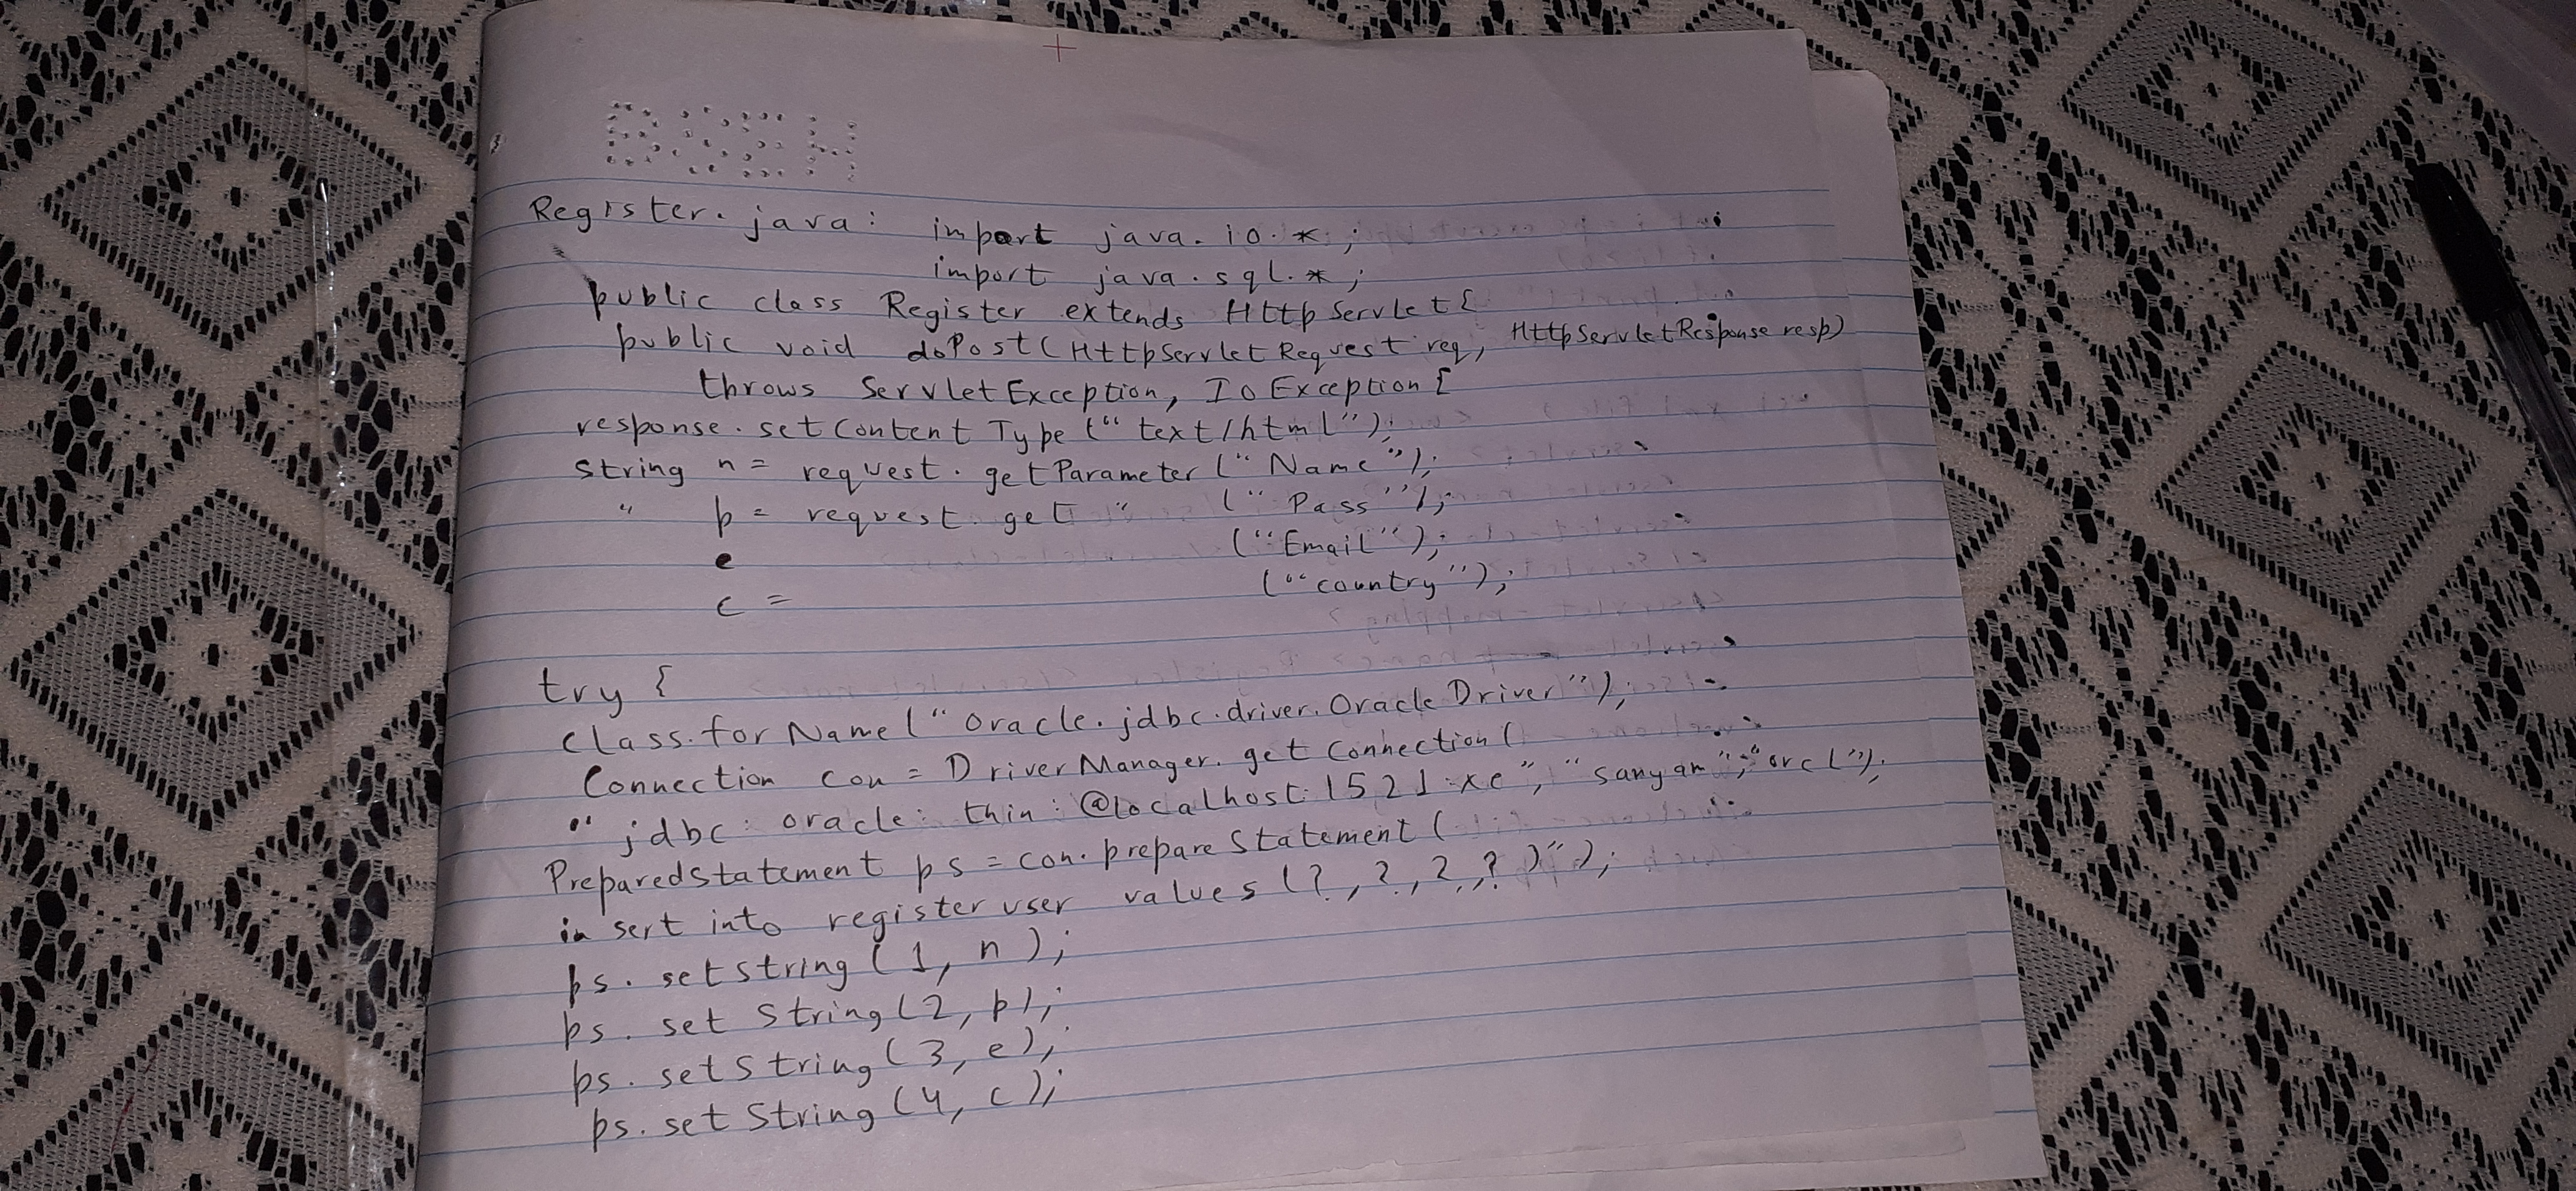 Register.java: import java.io.*;
import java.sql.*;
public class Register extends HttpServlet{
public void doPost(HttpServletRequest req, HttpServletResponse resp)
throws ServletException, IoException{
response.setContentType("text/html");
string n = request.getParameter("Name");
" p = request.get " ("Pass");
e ("Email");
c = ("country");
try {
class.forName("oracle.jdbc.driver.OracleDriver");
Connection con = DriverManager.getConnection(
"jdbc:oracle:thin:@localhost:1521:xe", "sanyam", "orcl");
Preparedstatement ps = con.prepareStatement(
insert into registeruser values (?,?,?,?)");
ps.setstring(1, n);
ps.setString(2, p);
ps.setString(3, e);
ps.setString(4, c);